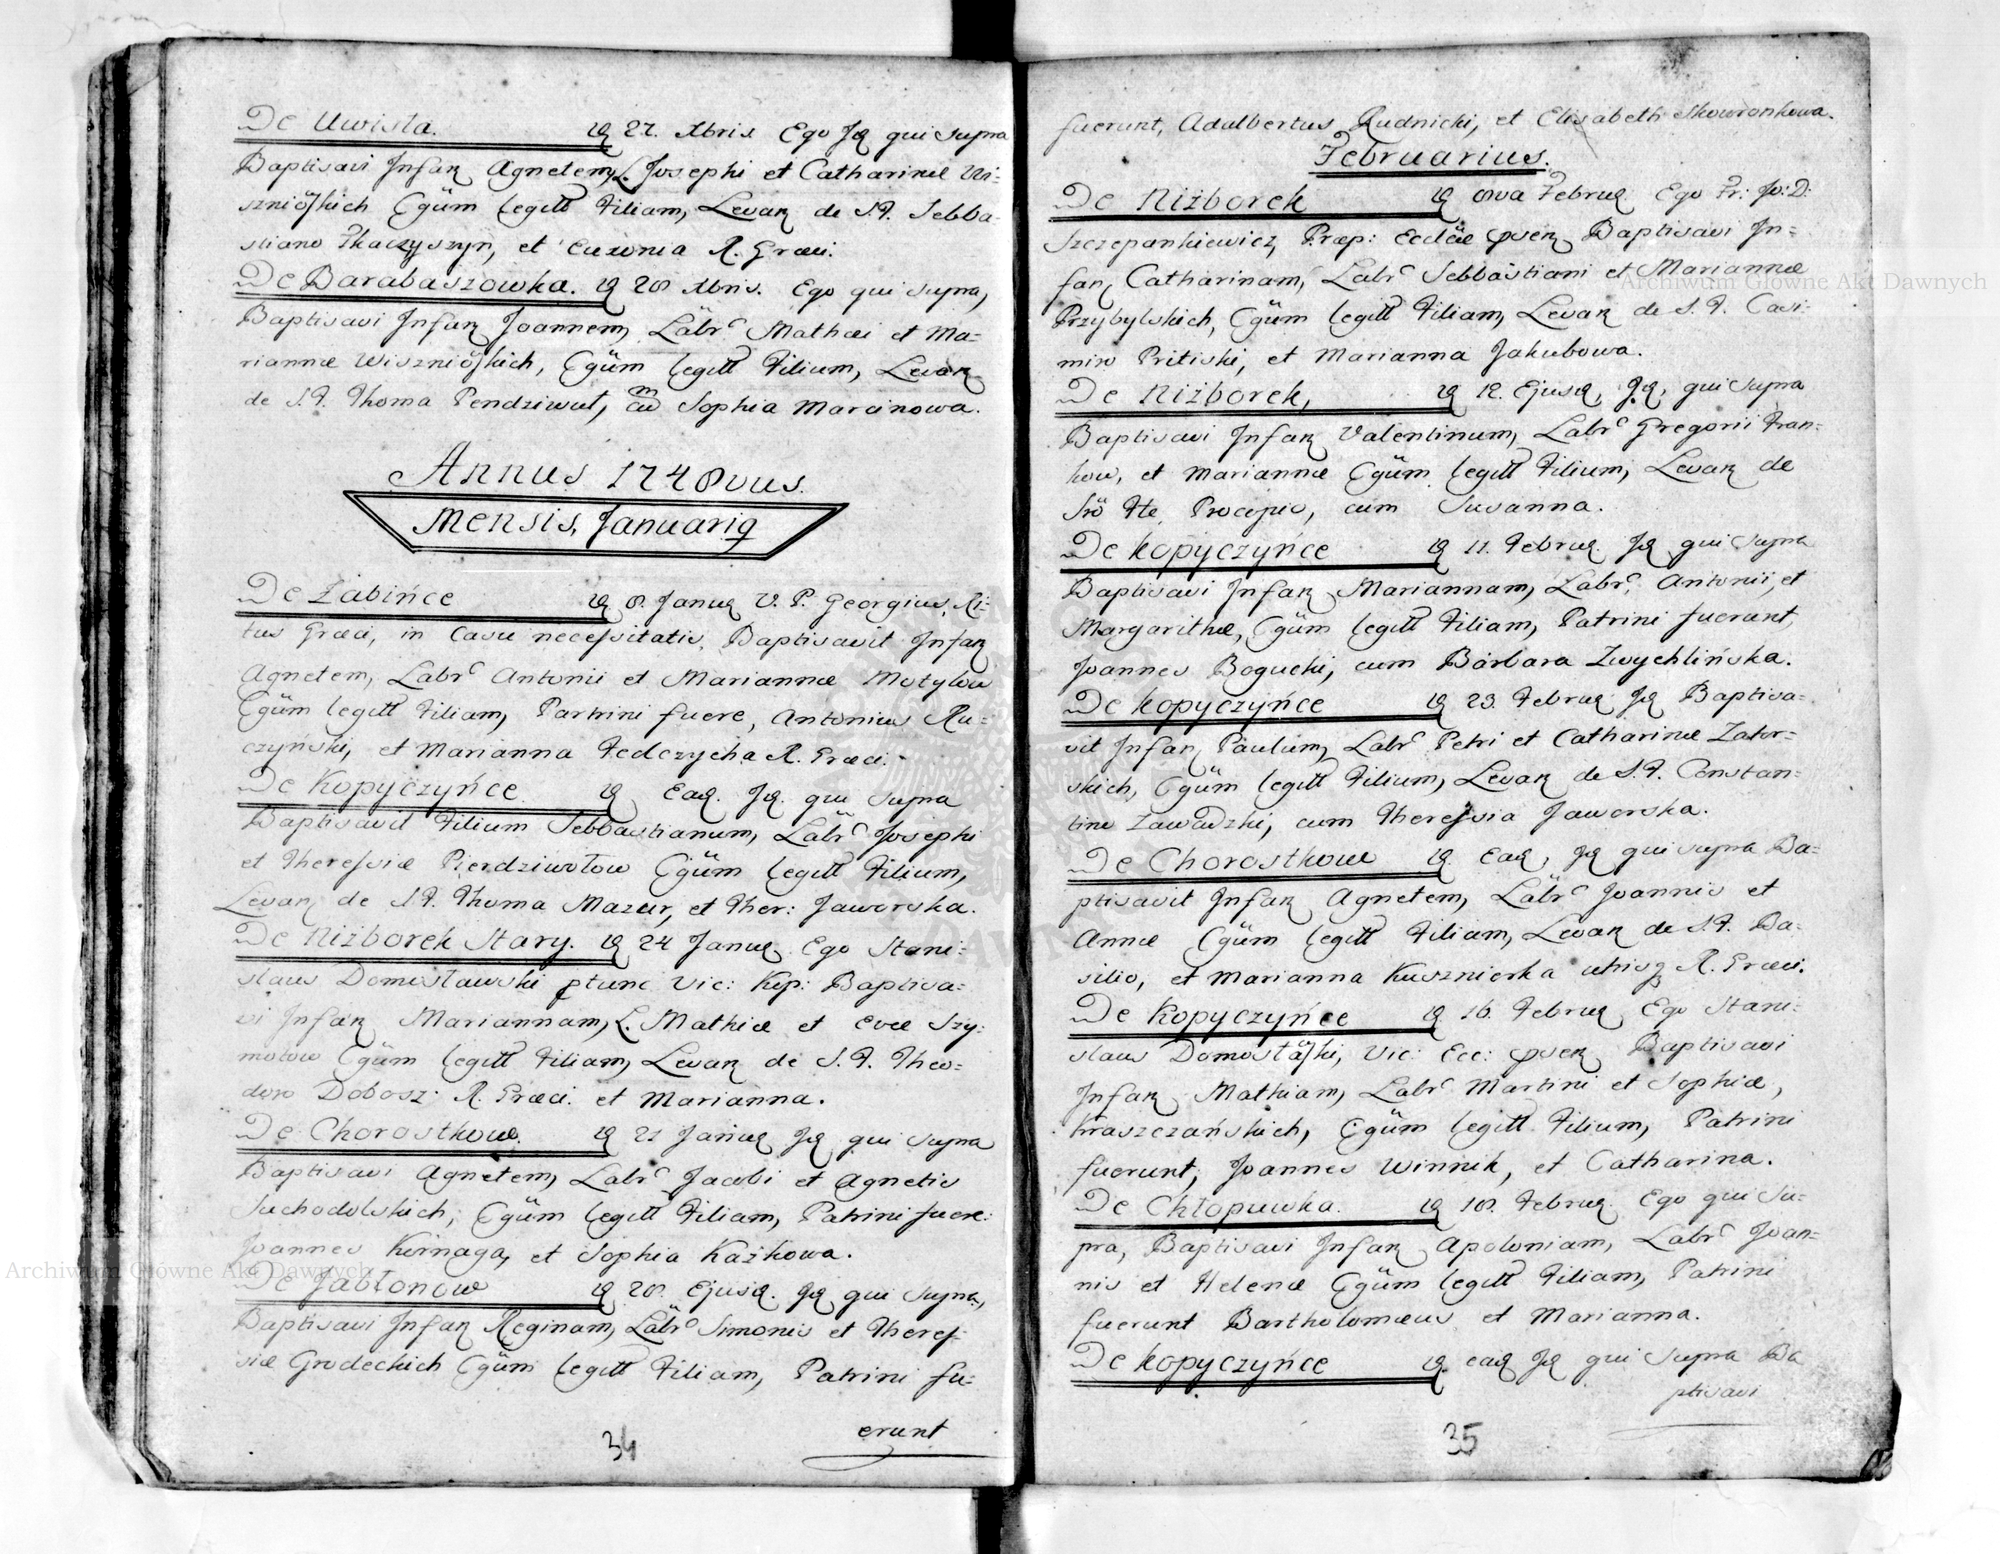 De Uwisła. 19 27. Xbris Ego Jd qui supra
Baptisavi Infan Agnetem, L. Josephi et Catharinæ Wi=
szniöskich Cgüm legitt Filiam, Levan de S.F. Sebba=
stiano Tkaczyszyn, et Euxonia R. Græci.
De Barabaszowka. 19 28 Xbris. Ego qui supra,
Baptisavi Infan Joannem, Labr Mathæi et Ma=
riannæ Wiszniöskich, Cgüm legitt Filium, Levan
de S.F. Thoma Pendziwut, cum Sophia Marcinowa.
Annus 1748vus.
Mensis, Januarig
De Żabińce 19 8. Janua V. P. Georgius, Ri=
tus Græci, in Casu necessitatis, Baptisavit Infan
Agnetem, Labr Antonii et Mariannæ Motylow
Cgüm legitt Filiam, Partrini fuere, Antonius Ru=
czyński, et Marianna Fedczycha R. Græci.
De Kopyczyńce 19 Ead. Jd. qui supra
Baptisavit Filium Sebbastianum, Labr Josephi
et Theressiæ Pierdziwołow Cgüm legitt Filium,
Levan de S.F. Thoma Mazur, et Ther: Jaworska.
De Niżborek Stary. 19 24 Janua Ego Stani=
slaus Domosławski ptunc Vic: Kop: Baptisa=
vi Infan Mariannam, L. Mathiæ et Evæ Szy:
molow Cgüm legitt Filiam, Levan de S.F. Theo=
doro Dobosz R. Græci. et Marianna.
De Chorostkow. 19 21 Janua Jd qui supra
Baptisavi Agnetem, Labr Jacobi et Agnetis
Suchodolskich, Cgüm legitt Filiam, Patrini fuere:
Joannes Kornaga, et Sophia Każkowa.
De Jabłonow 19 28. Ejusd. Jd qui supra,
Baptisavi Infan Reginam, Labr Simonis et Theres=
siæ Grodeckich Cgüm legitt Filiam, Patrini fu=
erunt
34
fuerunt, Adalbertus Rudnicki, et Elisabeth Skowronkowa.
Februarius.
De Niżborek 19 8va Februa Ego Fr: Jo: D:
Szczepankiewicz, Præp: Eccläe psen, Baptisavi In=
fan, Catharinam, Labr Sebbastiani et Mariannæ
Przybylskich, Cgüm legitt Filiam, Levan de S.F. Casi=
miro Pritiski, et Marianna Jakubowa.
De Niżborek, 19 12. Ejusd, Jd, qui supra
Baptisavi Infan Valentinum, Labr Gregorii Fran=
kow, et Mariannæ Cgüm legitt Filium, Levan de
Srö Fte Procopio, cum Susanna.
De Kopyczyńce 19 11. Februa. Jd qui supra
Baptisavi Infan Mariannam, Labr, Antonii, et
Margarithæ, Cgüm legitt Filiam, Patrini fuerunt,
Joannes Bogucki, cum Barbara Zwychlińska.
De Kopyczyńce 19 23. Februa Jd Baptisa=
vit Infan Paulum, Labr Petri et Catharinæ Zator=
skich, Cgüm legitt Filium, Levan de S.F. Constan=
tino Zawadzki, cum Theressia Jaworska.
De Chorostkow 19. Ead, Jd qui supra Ba=
ptisavit Infan Agnetem, Labr Joannis et
Annæ Cgüm legitt Filiam, Levan de S.F. Ba=
silio, et Marianna Kusznierka utrisq R. Græci.
De Kopyczyńce 19 16. Februa Ego Stani=
slaus Domosłäski, Vic: Ecc: psen Baptisavi
Infan Mathiam, Labr Martini et Sophiæ,
Kraszczańskich, Cgüm legitt Filium, Patrini
fuerunt, Joannes Winnik, et Catharina.
De Chłopuwka. 19 18. Februa. Ego qui su=
pra, Baptisavi Infan Apoloniam, Labr Joan=
nis et Helenæ Cgüm legitt Filiam, Patrini
fuerunt Bartholomæus et Marianna.
De Kopyczyńce 19. ead Jd qui supra Ba
ptisavi
35
Archiwum Główne Akt Dawnych
Archiwum Główne Akt Dawnych